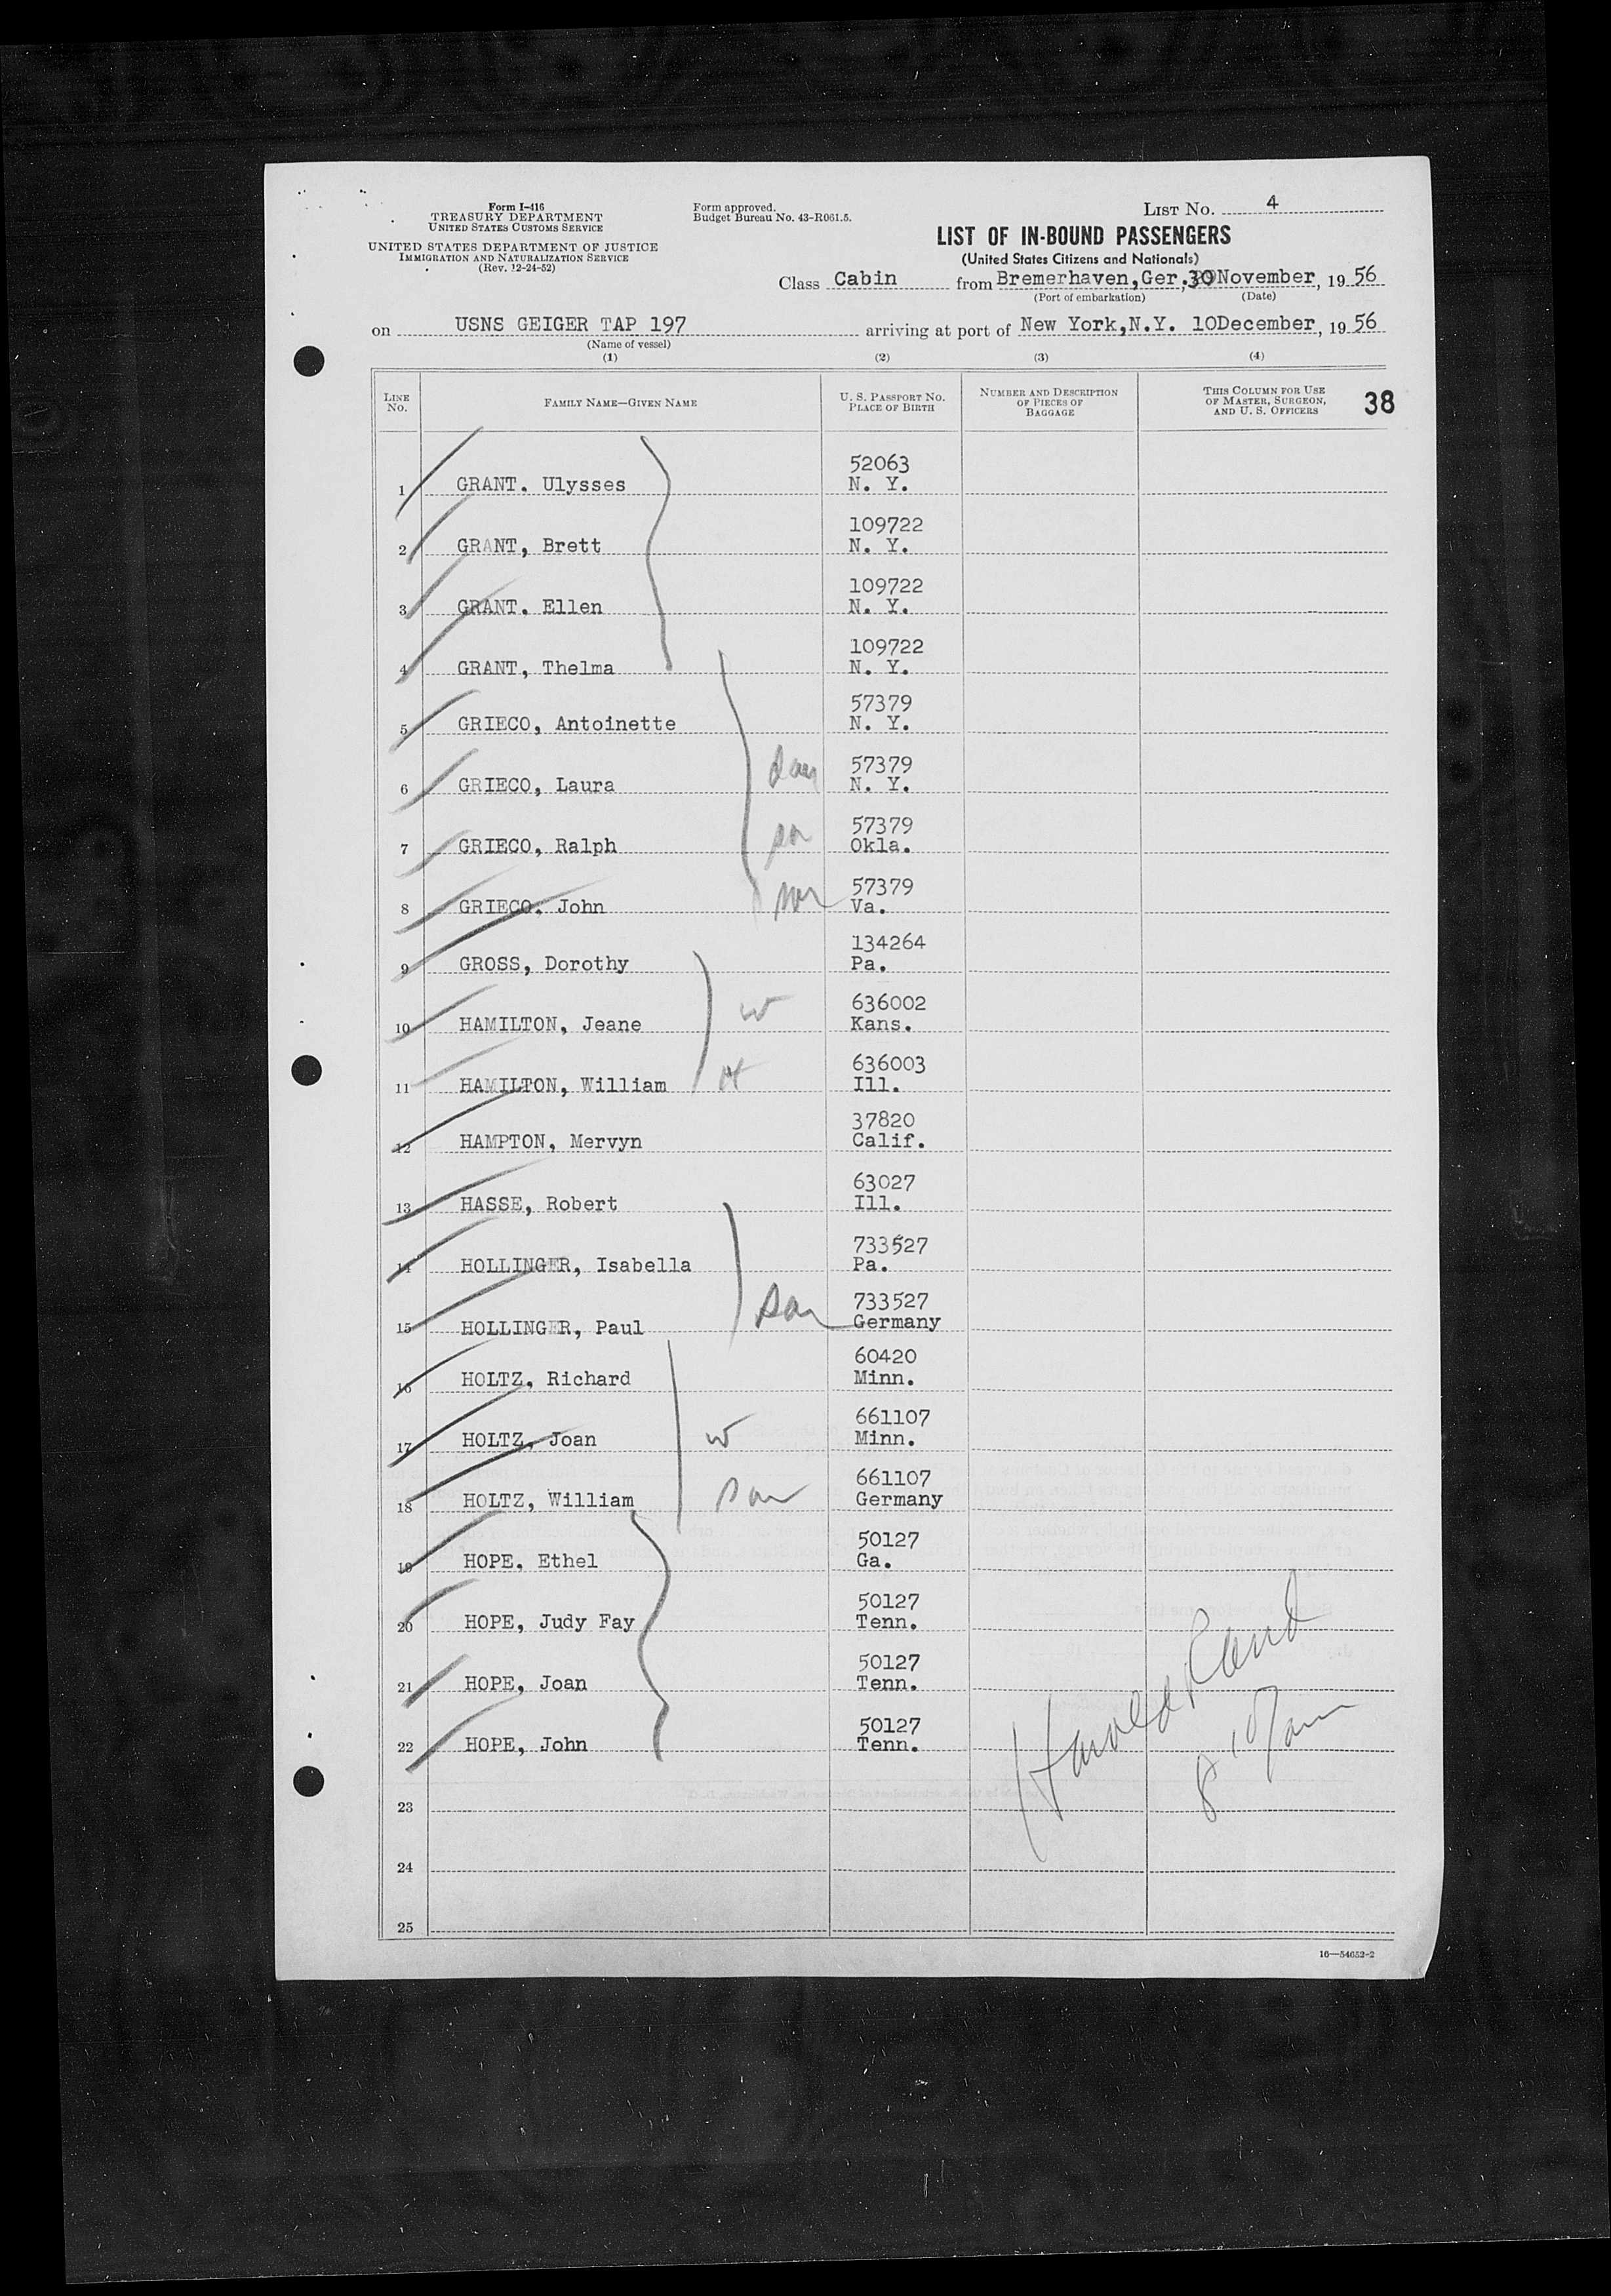 Form I-416
TREASURY DEPARTMENT
UNITED STATES CUSTOMS SERVICE
UNITED STATES DEPARTMENT OF JUSTICE
IMMIGRATION AND NATURALIZATION SERVICE
(Rev. 12-24-52)
Form approved.
Budget Bureau No. 43-R061.5.
LIST NO. 4
LIST OF IN-BOUND PASSENGERS
(United States Citizens and Nationals)
Class Cabin from Bremerhaven,Ger.,30 November, 19 56
(Port of embarkation) (Date)
on USNS GEIGER TAP 197 arriving at port of New York,N.Y. 10December, 19 56
(Name of vessel)
(1) (2) (3) (4)
LINE NO. FAMILY NAME—GIVEN NAME U. S. PASSPORT NO. PLACE OF BIRTH NUMBER AND DESCRIPTION OF PIECES OF BAGGAGE THIS COLUMN FOR USE OF MASTER, SURGEON, AND U. S. OFFICERS 38
52063
1 GRANT. Ulysses N. Y.
109722
2 GRANT, Brett N. Y.
109722
3 GRANT. Ellen N. Y.
109722
4 GRANT, Thelma N. Y.
57379
5 GRIECO, Antoinette N. Y.
57379
6 GRIECO, Laura dau N. Y.
57379
7 GRIECO, Ralph son Okla.
57379
8 GRIECO. John son Va.
134264
9 GROSS, Dorothy Pa.
636002
10 HAMILTON, Jeane w Kans.
636003
11 HAMILTON, William H Ill.
37820
12 HAMPTON, Mervyn Calif.
63027
13 HASSE, Robert Ill.
733527
14 HOLLINGER, Isabella Pa.
733527
15 HOLLINGER, Paul son Germany
60420
16 HOLTZ, Richard Minn.
661107
17 HOLTZ, Joan w Minn.
661107
18 HOLTZ, William son Germany
50127
19 HOPE, Ethel Ga.
50127
20 HOPE, Judy Fay Tenn.
50127
21 HOPE, Joan Tenn.
50127
22 HOPE, John Tenn.
Harold
23
24
25
16—54652-2